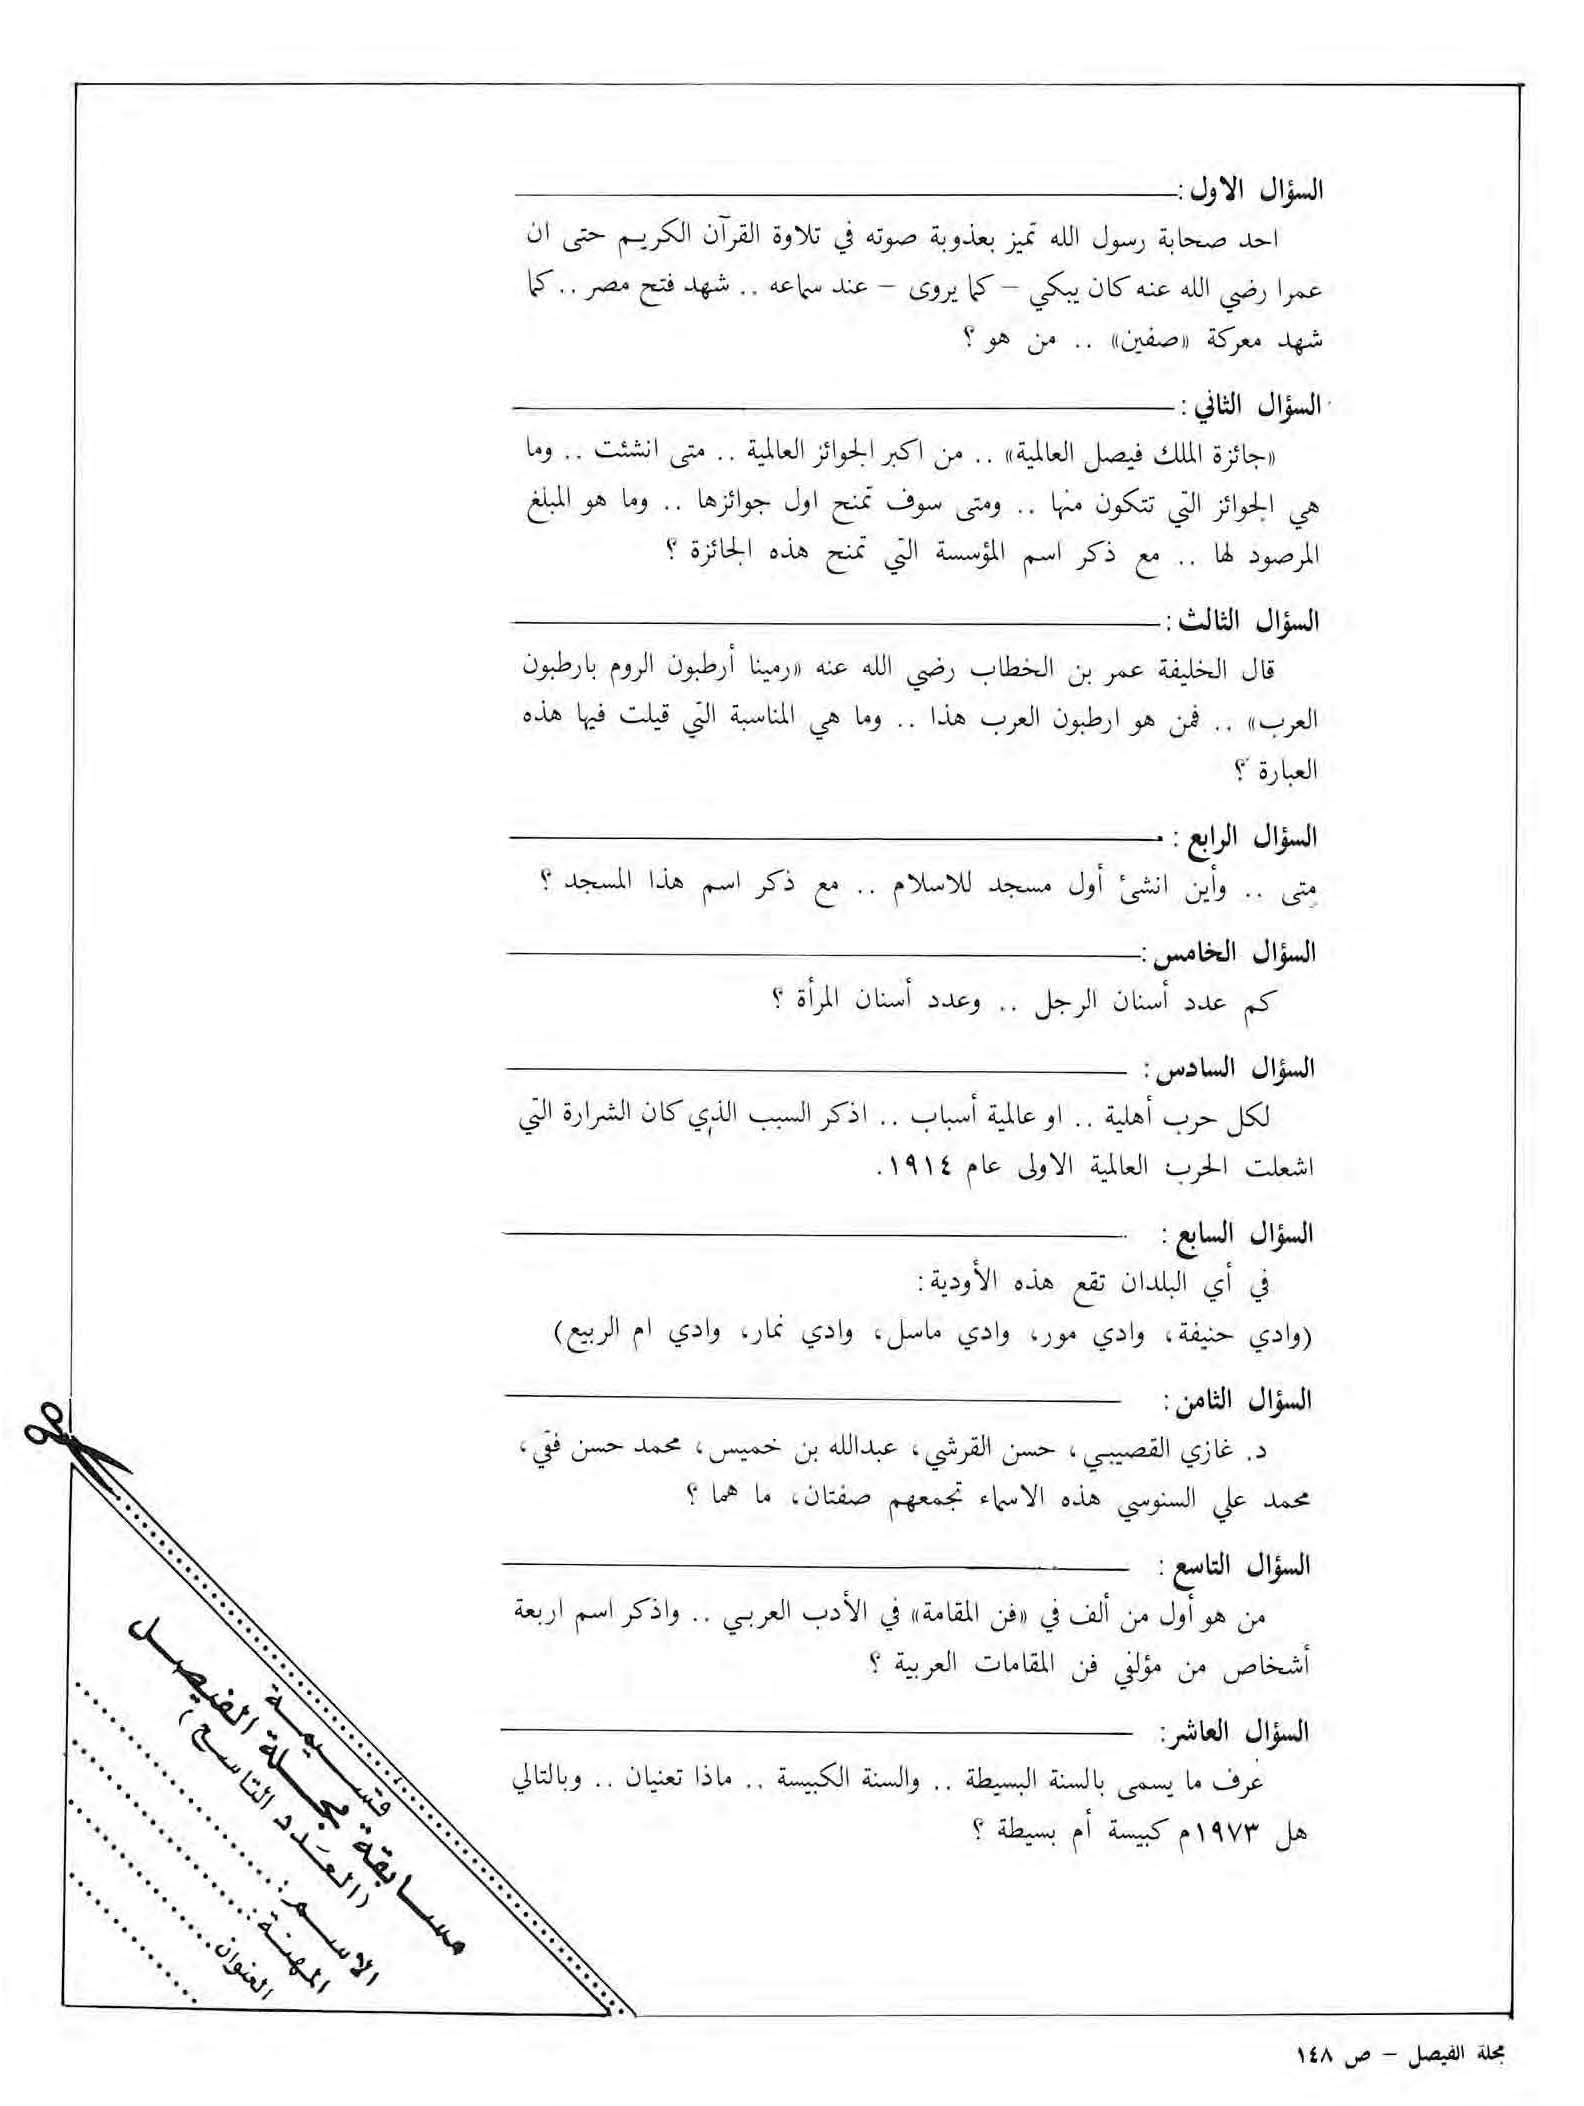 السؤال الاول :
احد صحابة رسول الله تميز بعذوبة صوته في تلاوة القرآن الكريم حتى ان
عمرا رضي الله عنه كان يبكي – كما يروى – عند سماعه .. شهد فتح مصر .. كما
شهد معركة «صفين» .. من هو ؟
السؤال الثاني :
«جائزة الملك فيصل العالمية» .. من اكبر الجوائز العالمية .. متى انشئت .. وما
هي الجوائز التي تتكون منها .. ومتى سوف تمنح اول جوائزها .. وما هو المبلغ
المرصود لها .. مع ذكر اسم المؤسسة التي تمنح هذه الجائزة ؟
السؤال الثالث :
قال الخليفة عمر بن الخطاب رضي الله عنه «رمينا أرطبون الروم بارطبون
العرب» .. فمن هو ارطبون العرب هذا .. وما هي المناسبة التي قيلت فيها هذه
العبارة ؟
السؤال الرابع :
متى .. وأين انشئ أول مسجد للاسلام .. مع ذكر اسم هذا المسجد ؟
السؤال الخامس :
كم عدد أسنان الرجل .. وعدد أسنان المرأة ؟
السؤال السادس :
لكل حرب أهلية .. او عالمية أسباب .. اذكر السبب الذي كان الشرارة التي
اشعلت الحرب العالمية الاولى عام ١٩١٤.
السؤال السابع :
في أي البلدان تقع هذه الأودية :
(وادي حنيفة، وادي مور، وادي ماسل، وادي نمار، وادي ام الربيع)
السؤال الثامن :
د. غازي القصيبي، حسن القرشي، عبدالله بن خميس، محمد حسن فقي،
محمد علي السنوسي هذه الاسماء تجمعهم صفتان، ما هما ؟
السؤال التاسع :
من هو أول من ألف في «فن المقامة» في الأدب العربي .. واذكر اسم اربعة
أشخاص من مؤلفي فن المقامات العربية ؟
السؤال العاشر :
عرف ما يسمى بالسنة البسيطة .. والسنة الكبيسة .. ماذا تعنيان .. وبالتالي
هل ١٩٧٣م كبيسة أم بسيطة ؟
قسيمة
مسابقة مجلة الفيصل
(العدد التاسع)
الاسم :
المهنة :
العنوان
مجلة الفيصل – ص ١٤٨